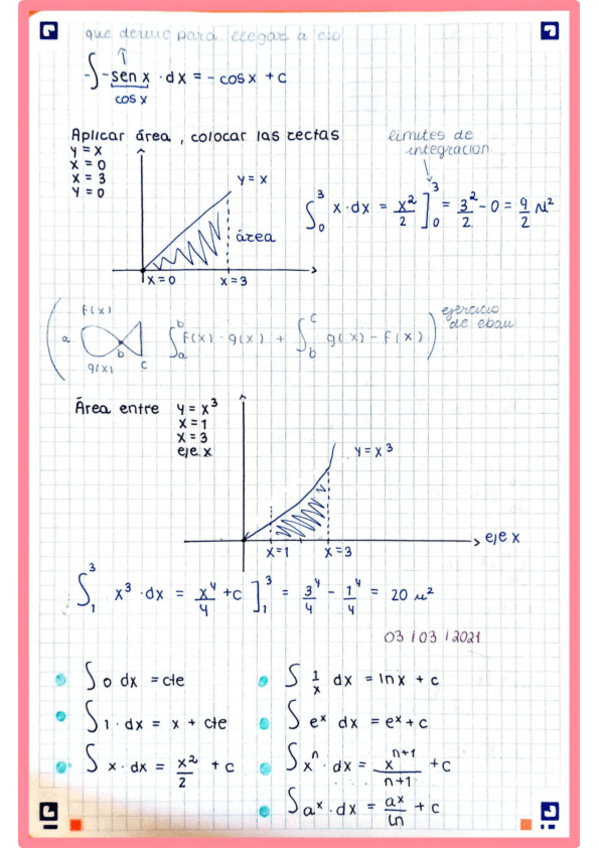 que derivé para llegar a eso
∫ -sen x · dx = - cos x + c
cos x
Aplicar área, colocar las rectas
y = x
x = 0
x = 3
y = 0
y = x
área
x=0
x=3
límites de
integración
∫₀³ x·dx = x²/2 ]₀³ = 3²/2 - 0 = 9/2 u²
f(x)
a
b
c
g(x)
∫ₐᵇ f(x) - g(x) + ∫_b^c g(x) - f(x)
ejercicio
de ebau
Área entre y = x³
x = 1
x = 3
eje x
y = x³
eje x
x=1
x=3
∫₁³ x³ · dx = x⁴/4 + c ]₁³ = 3⁴/4 - 1⁴/4 = 20 u²
03/03/2021
∫ 0 dx = cte
∫ 1 · dx = x + cte
∫ x · dx = x²/2 + c
∫ 1/x dx = ln x + c
∫ eˣ dx = eˣ + c
∫ xⁿ · dx = xⁿ⁺¹/n+1 + c
∫ aˣ · dx = aˣ/ln + c